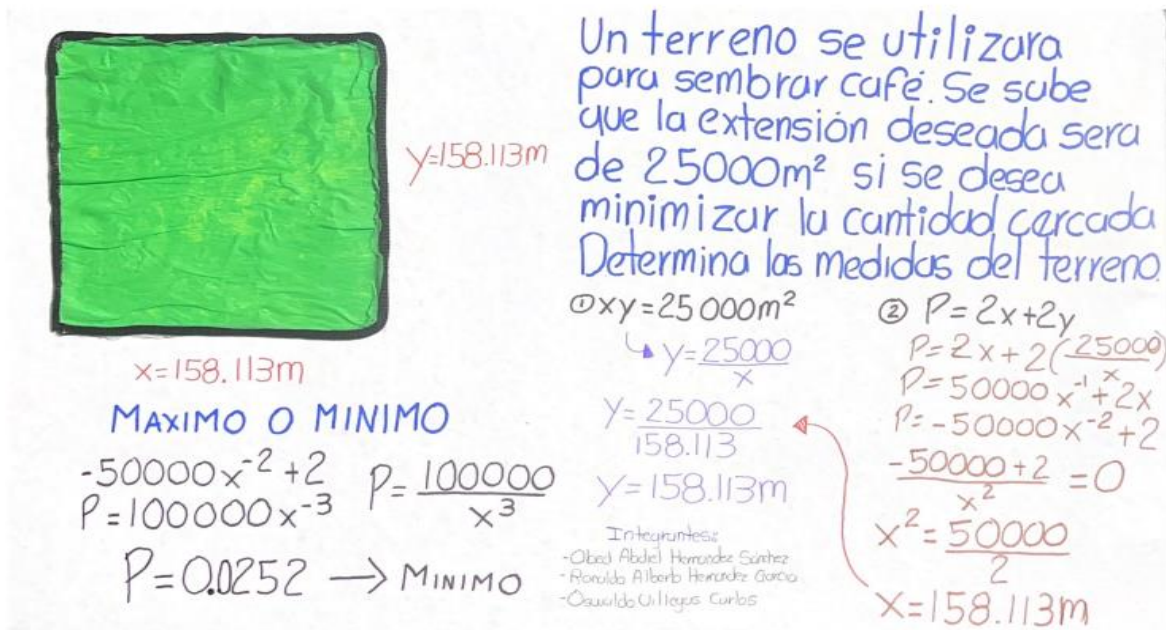 Un terreno se utilizara
para sembrar café. Se sabe
que la extensión deseada sera
de 25000m² si se desea
minimizar la cantidad cercada
Determina las medidas del terreno.
y=158.113m
x=158.113m
① xy=25000m²
y=25000/x
y=25000/158.113
y=158.113m
② P=2x+2y
P=2x+2(25000/x)
P=50000x⁻¹+2x
P=-50000x⁻²+2
-50000+2/x²=0
x²=50000/2
x=158.113m
MAXIMO O MINIMO
-50000x⁻²+2
P=100000x⁻³
P=100000/x³
P=0.0252 → MINIMO
Integrantes:
-Obed Abdiel Hernandez Sánchez
-Ronaldo Alberto Hernandez Garcia
-Oswaldo Villegas Carlos